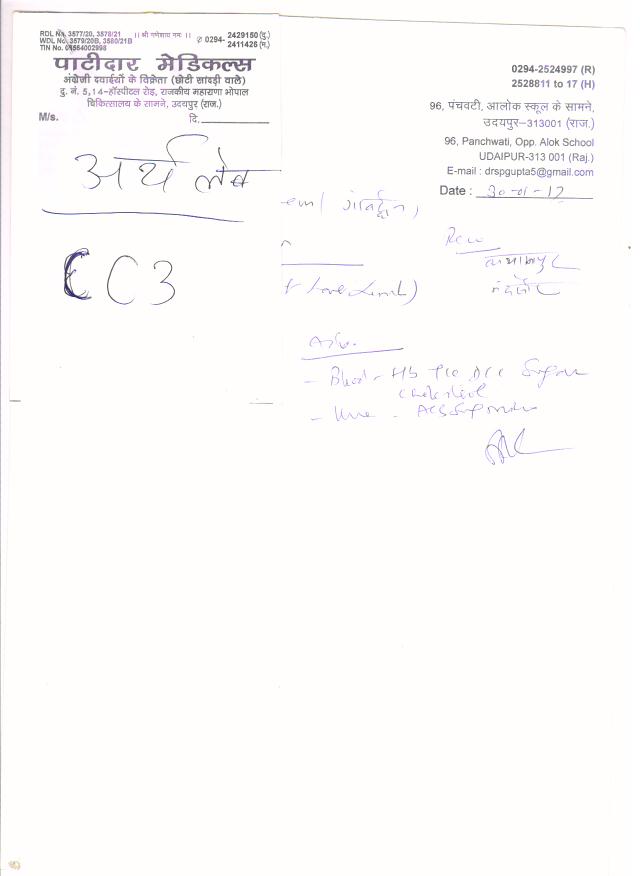 RDL No. 3577/20, 3578/21 ।। श्री गणेशाय नमः ।। 2429150 (दु.)
WDL No. 3579/20B, 3580/21B ✆ 0294- 2411426 (नि.)
TIN No. 08564002998
पाटीदार मेडिकल्स
अंग्रेजी दवाईयों के विक्रेता (छोटी सादड़ी वाले)
दु. नं. 5,14-हॉस्पीटल रोड़, राजकीय महाराणा भोपाल
चिकित्सालय के सामने, उदयपुर (राज.)
M/s. दि.
अर्थ लेब
C C 3
0294-2524997 (R)
2528811 to 17 (H)
96, पंचवटी, आलोक स्कूल के सामने,
उदयपुर-313001 (राज.)
96, Panchwati, Opp. Alok School
UDAIPUR-313 001 (Raj.)
E-mail : drspgupta5@gmail.com
Date : 30-01-12
Adv.
- Blood - Hb TLC DLC Sugar
Cholesterol
- Urine -